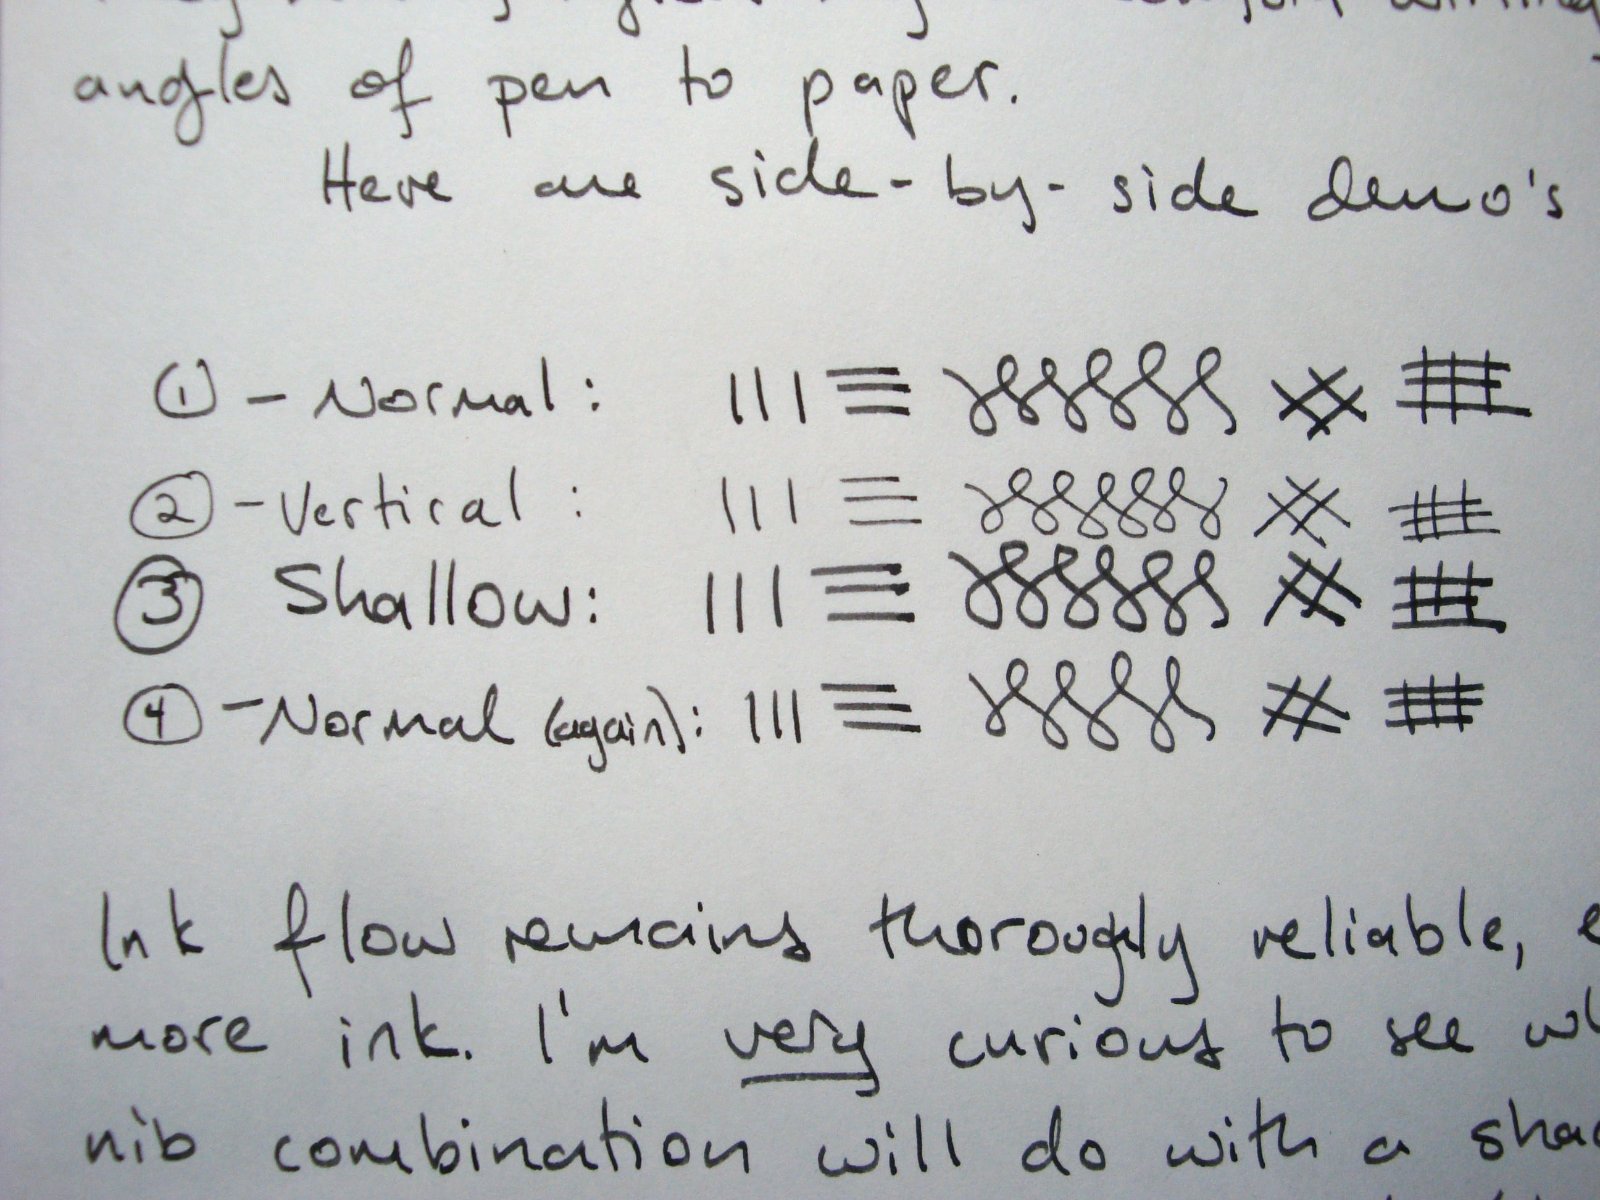 angles of pen to paper.
Here are side-by-side demo's
① - Normal:
② - Vertical :
③ Shallow:
④ - Normal (again):
Ink flow remains thoroughly reliable,
more ink. I'm very curious to see
nib combination will do with a